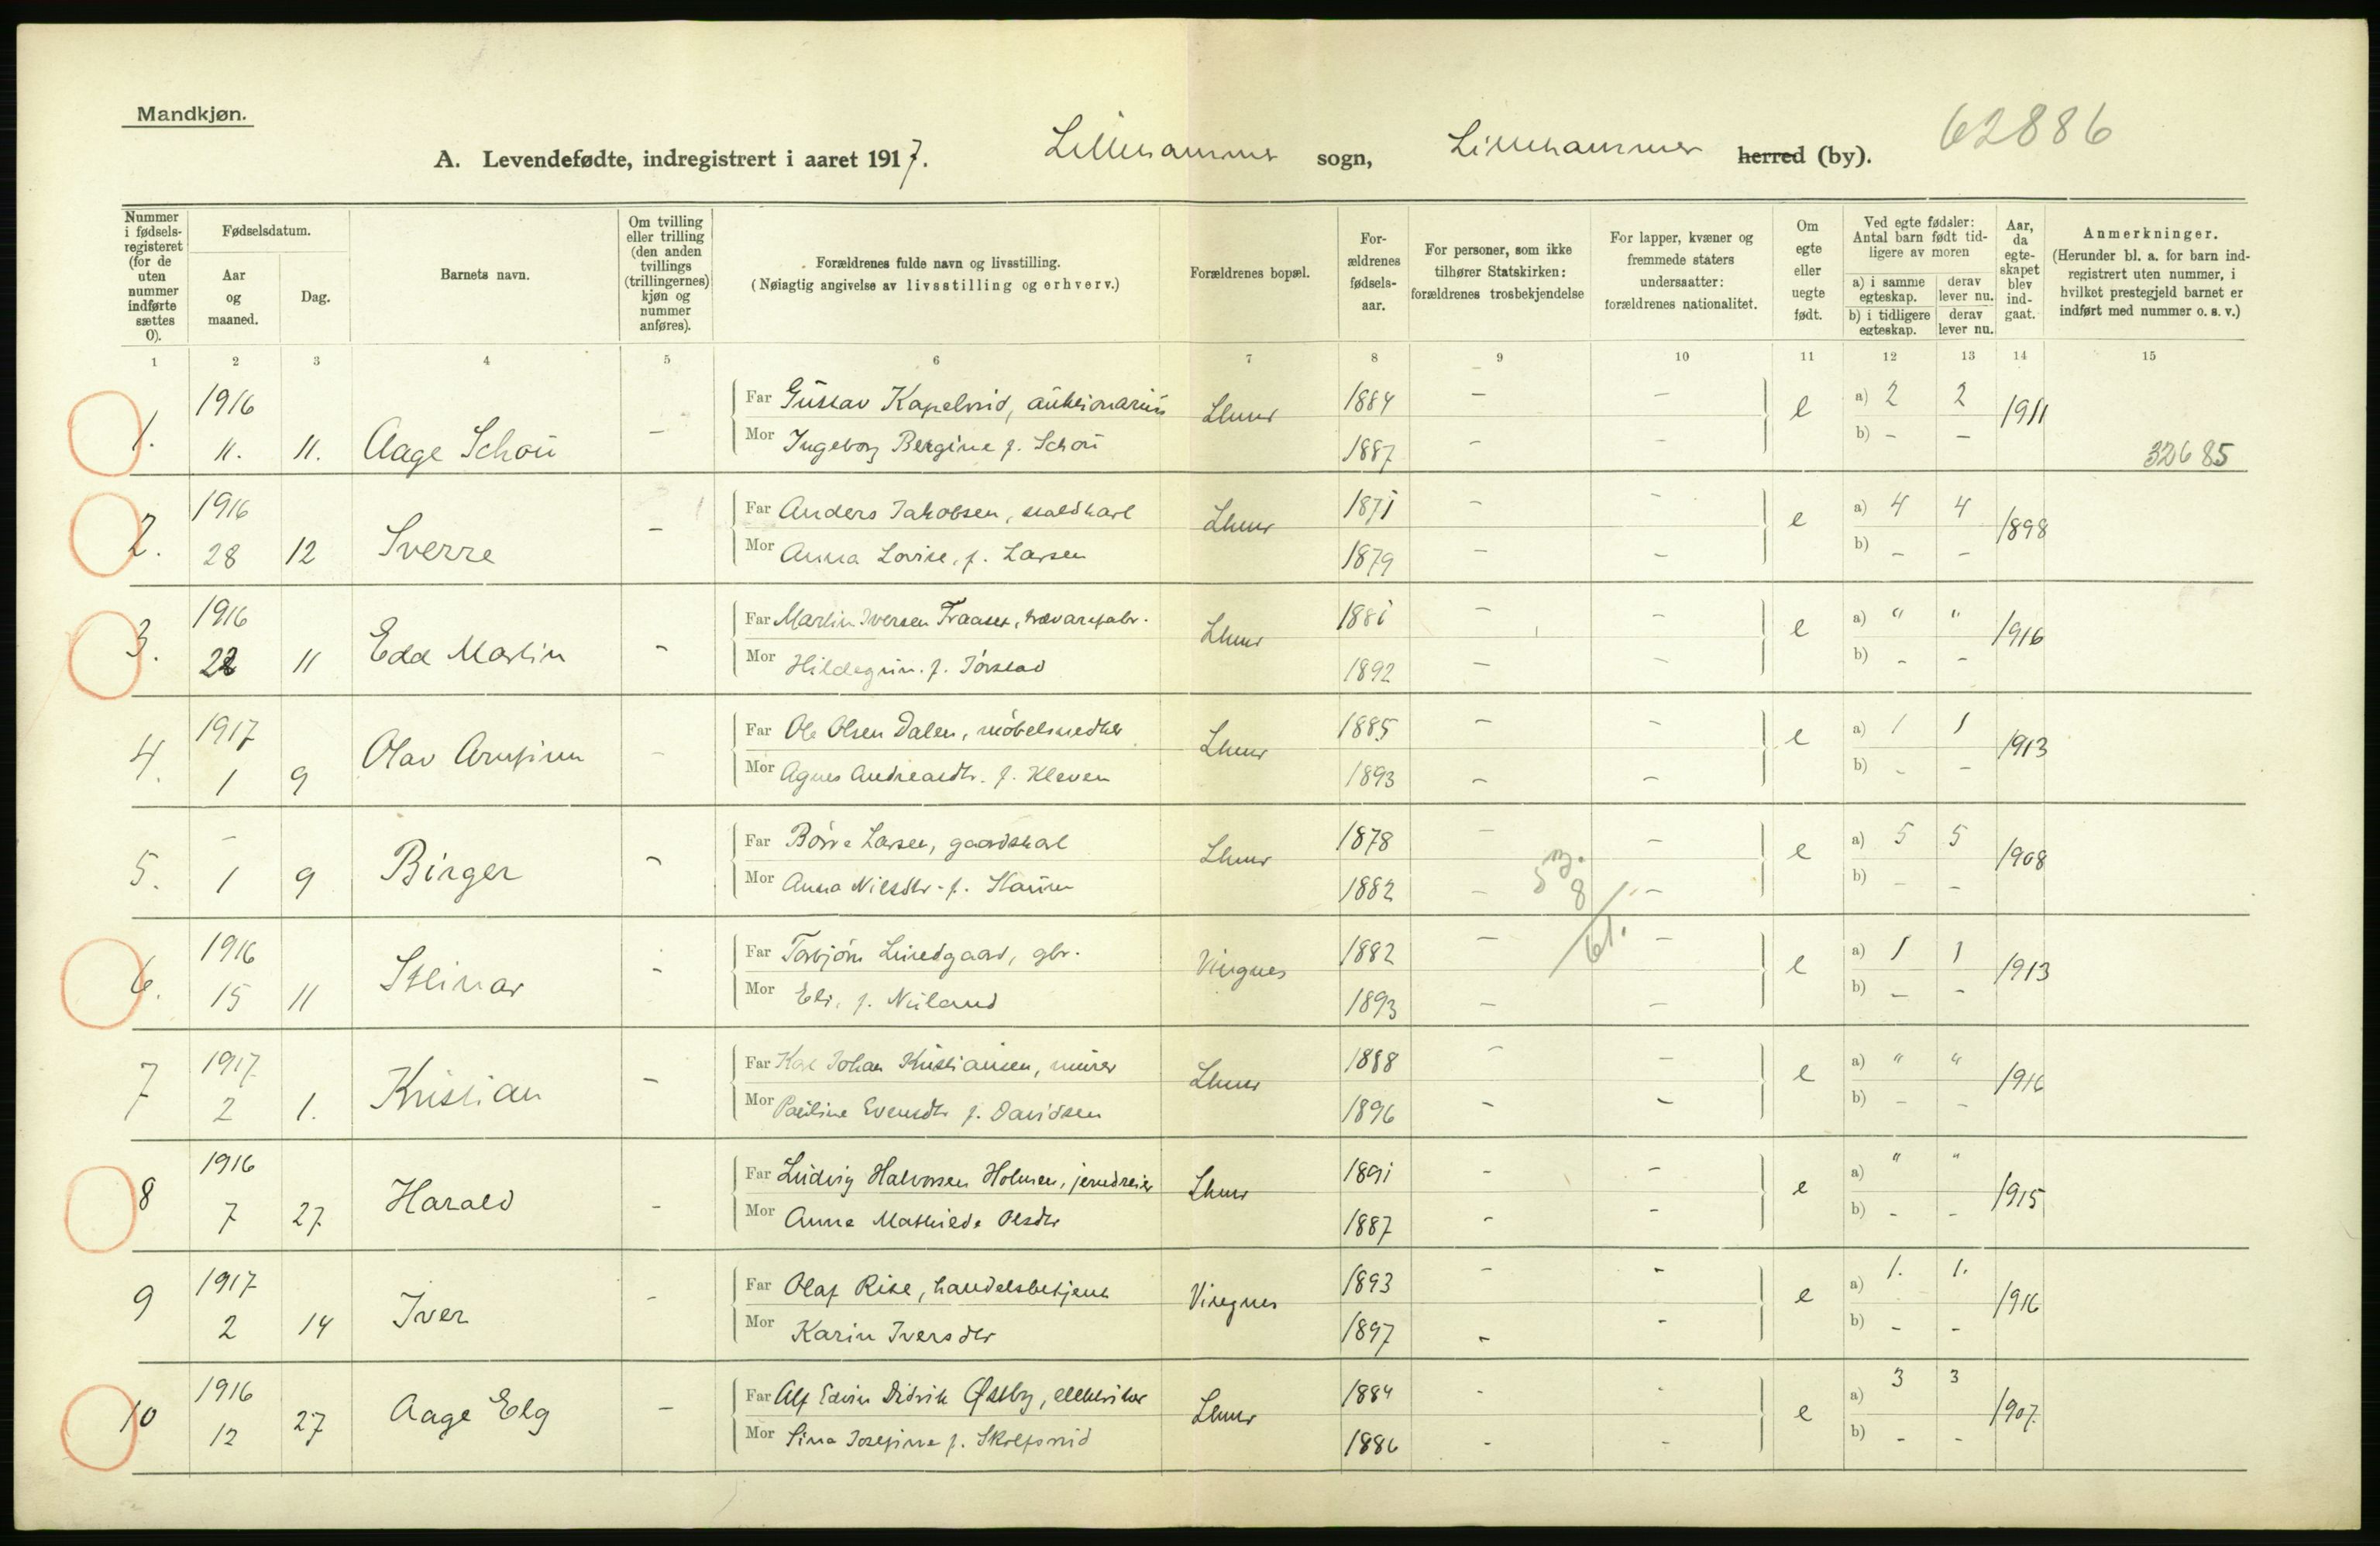 Mandkjøn.
A. Levendefødte, indregistrert i aaret 1917. Lillehammer sogn, Lillehammer herred (by). 62886
Nummer i fødsels-registeret (for de uten nummer indførte sættes 0).
Fødselsdatum.
Aar og maaned.
Dag.
Barnets navn.
Om tvilling eller trilling (den anden tvillings (trillingernes) kjøn og nummer anføres).
Forældrenes fulde navn og livsstilling.
(Nøiagtig angivelse av livsstilling og erhverv.)
Forældrenes bopæl.
For-ældrenes fødsels-aar.
For personer, som ikke tilhører Statskirken: forældrenes trosbekjendelse
For lapper, kvæner og fremmede staters undersaatter: forældrenes nationalitet.
Om egte eller uegte født.
Ved egte fødsler: Antal barn født tid-ligere av moren
a) i samme egteskap. derav lever nu.
b) i tidligere egteskap. derav lever nu.
Aar, da egte-skapet blev ind-gaat.
Anmerkninger.
(Herunder bl. a. for barn ind-registrert uten nummer, i hvilket prestegjeld barnet er indført med nummer o. s. v.)
1 2 3 4 5 6 7 8 9 10 11 12 13 14 15
1916 Far Gustav Kapelrud, auktionarius Lhmr 1884 - - e a) 2 2 1911
1. 11. 11. Aage Schou - Mor Ingeborg Bergine f. Schou 1887 - - b) - - 32685
1916 Far Anders Jakobsen, staldkarl Lhmr 1871 - - e a) 4 4 1898
2. 28 12 Sverre - Mor Anna Lovise, f. Larsen 1879 - - b) - -
1916 Far Martin Iversen Fraaset, trævarefabr. Lhmr 1881 - - e a) " " 1916
3. 22 11 Edd Martin - Mor f. Jørstad 1892 - - b) - -
1917 Far Ole Olsen Dalen, møbelsnedker Lhmr 1885 - - e a) 1 1 1913
4. 1 9 Olav Arnfinn - Mor Agnes Andreasdtr. f. Kleven 1893 - - b) - -
- Far Børre Larsen, gaardskarl Lhmr 1878 - - e a) 5 5 1908
5. 1 9 Birger - Mor Anna Nilsdtr. f. 1882 - - b) - -
53.
8
61.
1916 Far Torbjørn Lundgaard, gbr. Vingnes 1882 - - e a) 1 1 1913
6. 15 11 Steinar - Mor Eli, f. Nyland 1893 - - b) - -
1917 Far Karl Johan Kristiansen, murer Lhmr 1888 - - e a) " " 1916
7 2 1. Kristian - Mor Pauline Evensdtr f. Davidsen 1896 - - b) - -
1916 Far Ludvig Halvorsen Holmen, jerndreier Lhmr 1891 - - e a) " " 1915
8 7 27 Harald - Mor Anna Mathilde Olsdtr 1887 - - b) - -
1917 Far Olaf Rise, handelsbetjent Vingnes 1893 - - e a) 1. 1. 1916
9 2 14 Iver - Mor Karin Iversdtr 1897 - - b) - -
1916 Far Alf Edvin Didrik Østby, elektriker Lhmr 1884 - - e a) 3 3 1907.
10 12 27 Aage Elg - Mor Sina Josefine f. 1886 - - b) - -